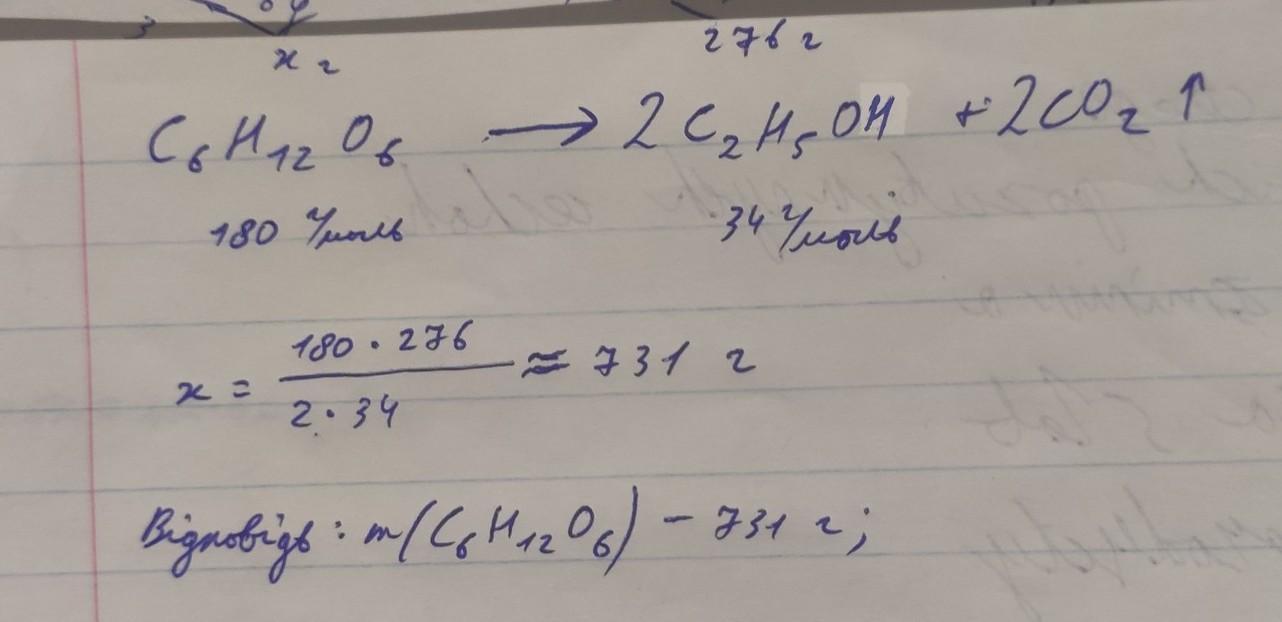 x г 276 г
C₆H₁₂O₆ → 2C₂H₅OH + 2CO₂ ↑
180 г/моль 34 г/моль
x = (180 · 276)/(2 · 34) ≈ 731 г
Відповідь: m(C₆H₁₂O₆) – 731 г;